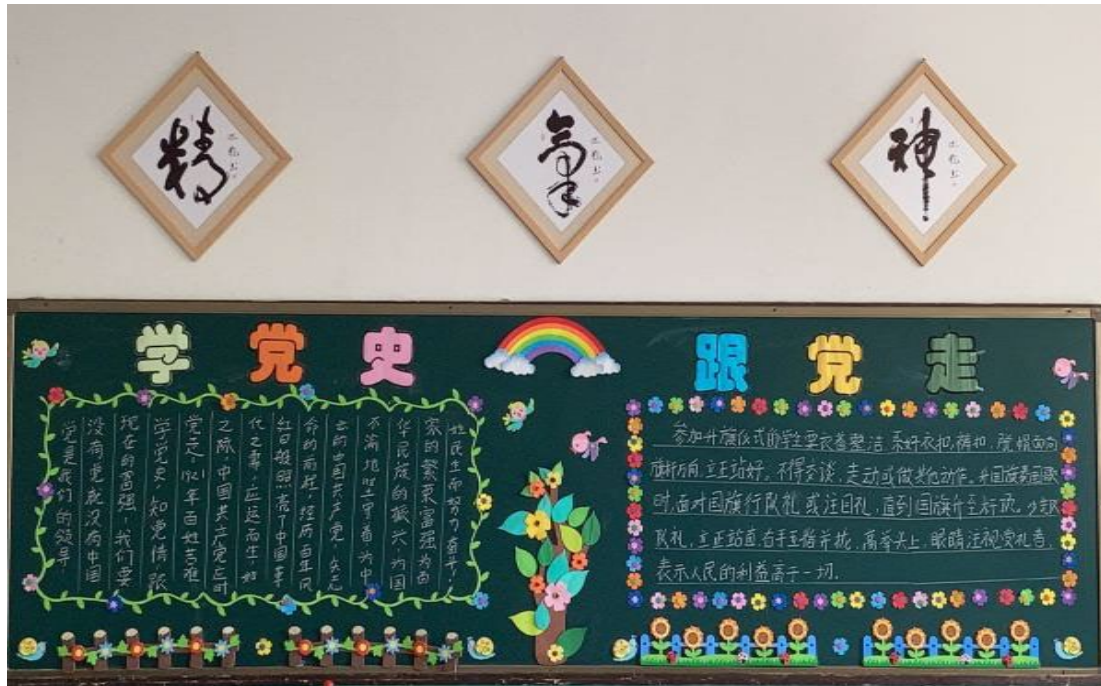 精
氣
神
学党史
跟党走
党是我们的领导，
没有党就没有中国
现在的富强，我们要
学党史，知党情，跟
党走。1921年百姓苦难
之际，中国共产党应时
代之需，应运而生，如
红日般照亮了中国革
命的前程，经历百年风
云的中国共产党，矢志
不渝地坚守着为中
华民族的振兴，为国
家的繁荣富强为百
姓民生而努力奋斗！
参加升旗仪式的学生要衣着整洁，系好衣扣、裤扣，脱帽面向
旗杆方向，立正站好，不得交谈、走动或做其他动作，升国旗奏国歌
时，面对国旗行队礼或注目礼，直到国旗升至杆顶。少先
队礼，立正站直右手五指并拢，高举头上，眼睛注视受礼者，
表示人民的利益高于一切。